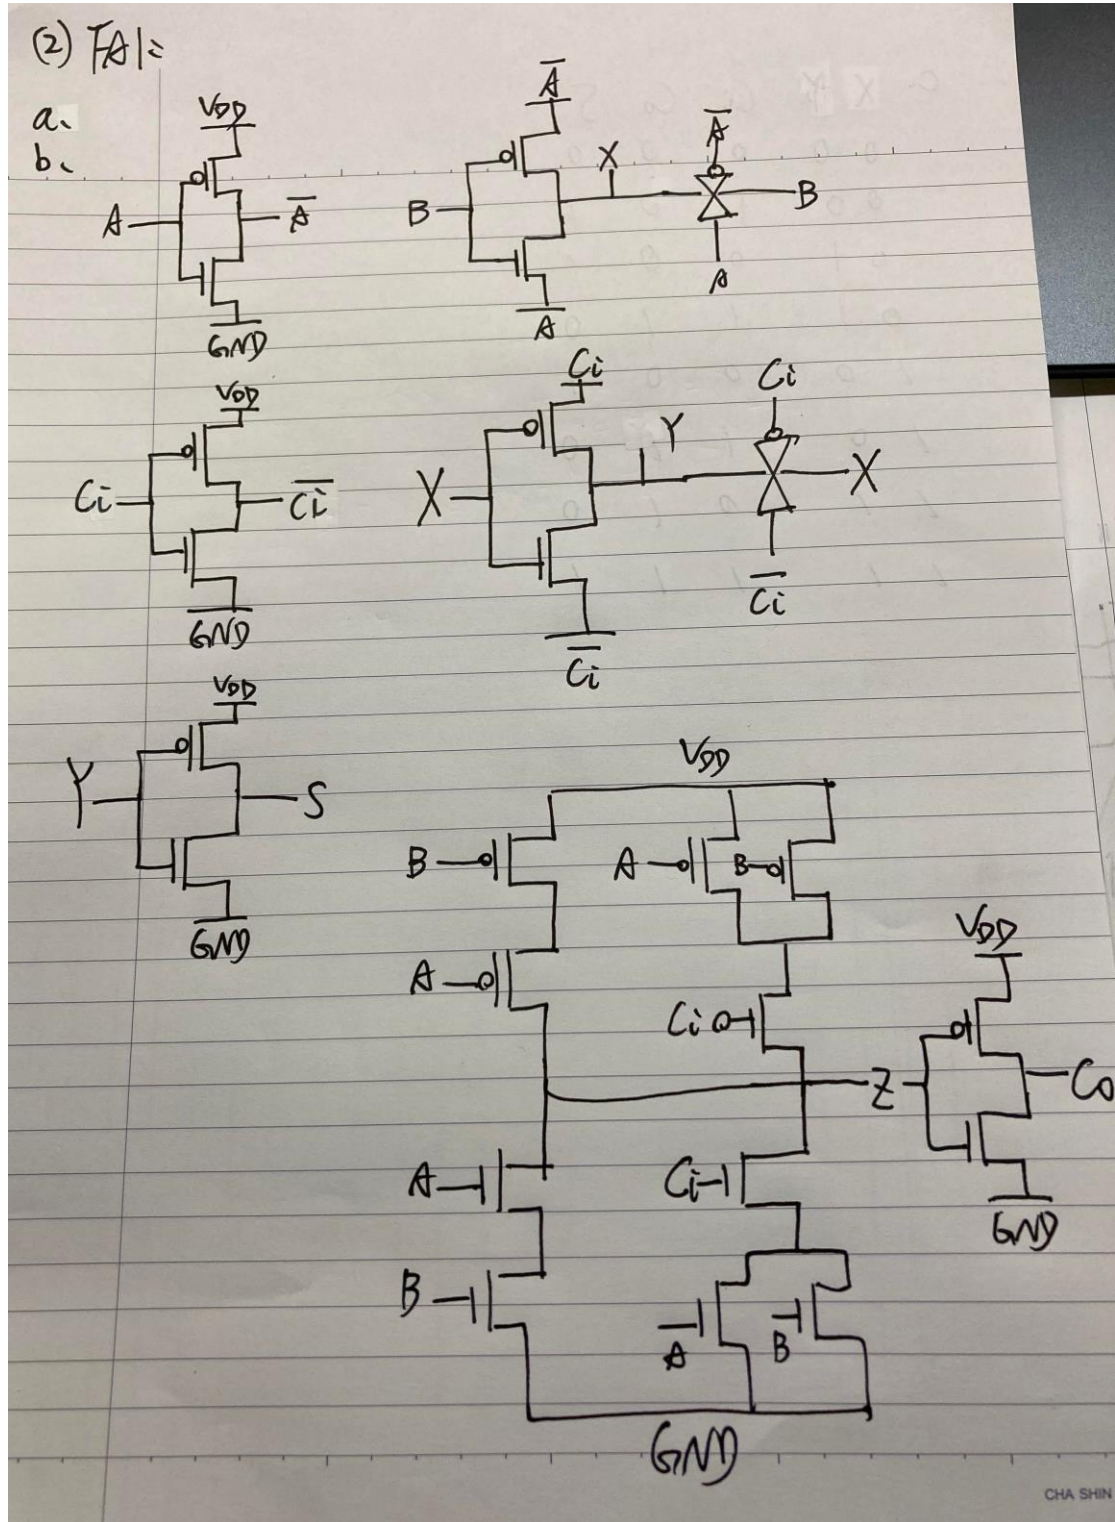 (2) FA1:
a、
b、
VDD
A
A̅
GND
A̅
B
X
A̅
B
A
A
VDD
Ci
C̅i̅
GND
Ci
X
Y
Ci
X
C̅i̅
C̅i̅
VDD
Y
S
GND
VDD
B
A
B
A
Ci
Z
VDD
Co
GND
A
Ci
B
A
B
GND
CHA SHIN